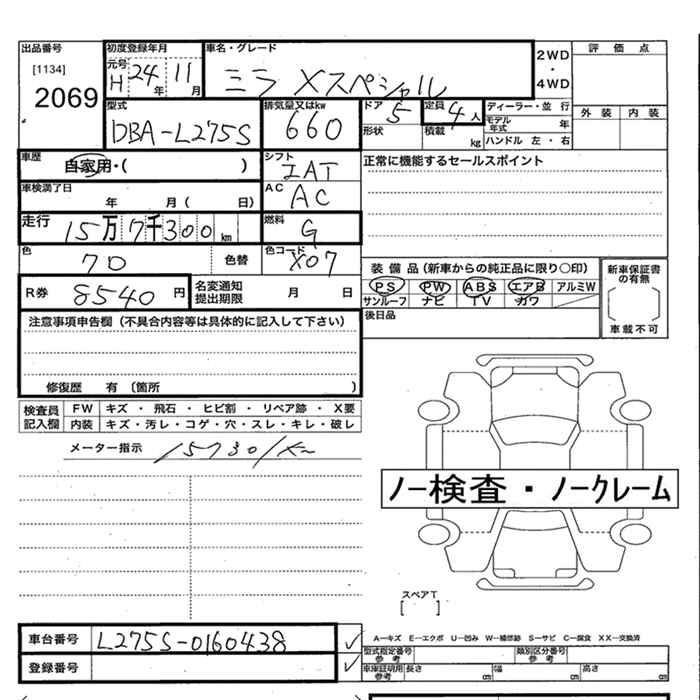 出品番号 初度登録年月 車名・グレード 2WD・4WD 評価点
[1134] 元号 H 24年 11月 ミラ Xスペシャル
2069 外装 内装
型式 排気量又はkw ドア 5 定員 4人 ディーラー・並行
DBA-L275S 660 形状 積載 kg モデル年式 年
ハンドル 左・右
車歴 自家用・( ) シフト IAT 正常に機能するセールスポイント
車検満了日 年 月( 日) AC AC
走行 15万7千300km 燃料 G
色 クロ 色替 色コード X07
装備品(新車からの純正品に限り○印) 新車保証書の有無
R券 8540円 名変通知提出期限 月 日 PS PW ABS エアB アルミW
サンルーフ ナビ TV カワ
[ ]
車載不可
注意事項申告欄(不具合内容等は具体的に記入して下さい) 後日品
修復歴 有 〔箇所 )
検査員記入欄 FW キズ・飛石・ヒビ割・リペア跡・X要
内装 キズ・汚レ・コゲ・穴・スレ・キレ・破レ
メーター指示 157301K
ノー検査・ノークレーム
スペアT
[ ]
車台番号 L275S-0160438 ✓
A-キズ E-エクボ U-凹み W-補修跡 S-サビ C-腐食 XX-交換済
登録番号 ✓ 型式指定番号 参考 類別区分番号 参考
車庫証明用 参考 長さ cm 幅 cm 高さ cm